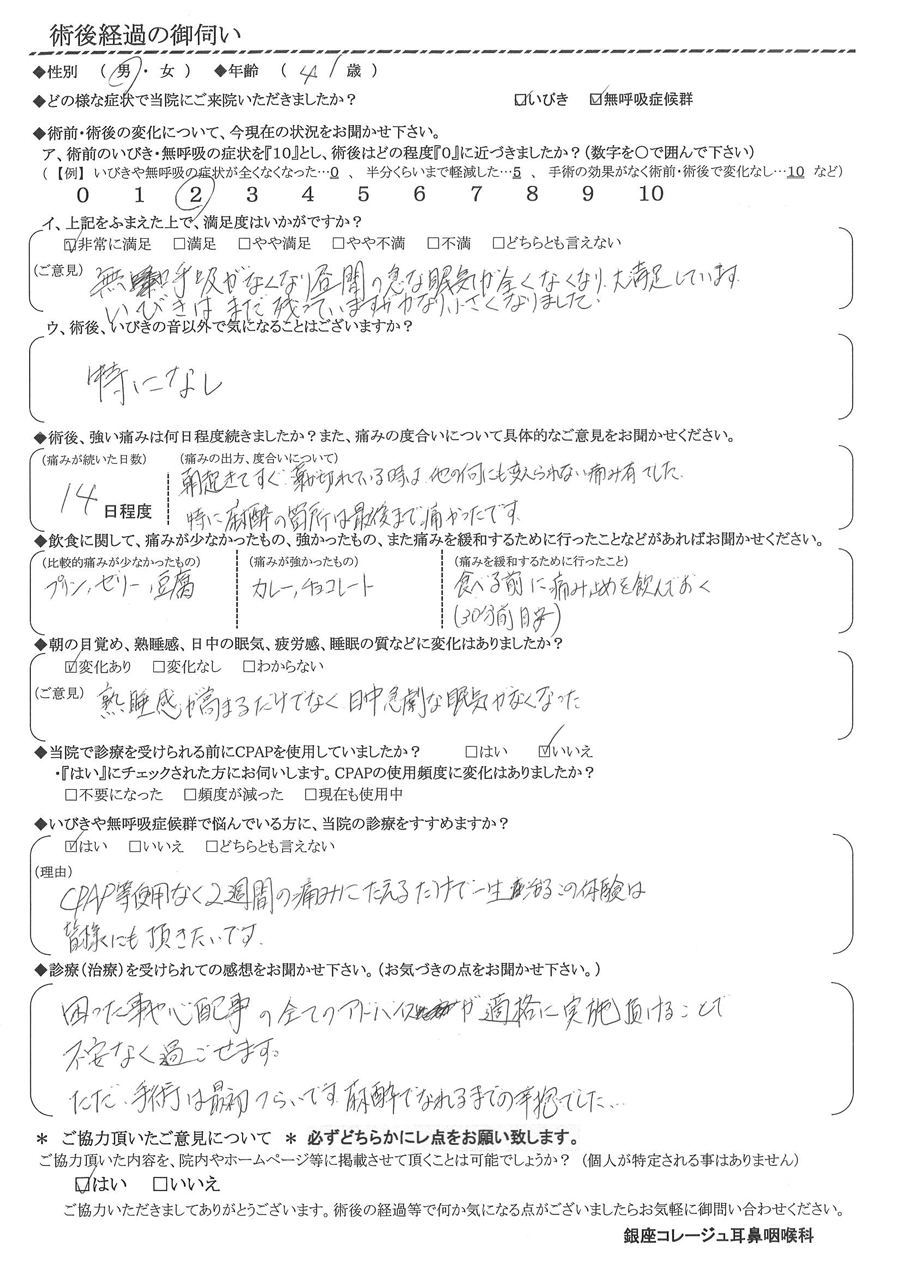 術後経過の御伺い
◆性別 （ 男 ・ 女 ） ◆年齢 （ 41 歳 ）
◆どの様な症状で当院にご来院いただきましたか？ ☑いびき ☑無呼吸症候群
◆術前・術後の変化について、今現在の状況をお聞かせ下さい。
ア、術前のいびき・無呼吸の症状を『10』とし、術後はどの程度『0』に近づきましたか？（数字を○で囲んで下さい）
（【例】 いびきや無呼吸の症状が全くなくなった…0 、 半分くらいまで軽減した…5 、 手術の効果がなく術前・術後で変化なし…10 など）
0 1 2 3 4 5 6 7 8 9 10
イ、上記をふまえた上で、満足度はいかがですか？
☑非常に満足 □満足 □やや満足 □やや不満 □不満 □どちらとも言えない
（ご意見） 無呼吸がなくなり昼間の急な眠気が全くなくなり、大満足しています。
いびきはまだ残っていますがかなり小さくなりました。
ウ、術後、いびきの音以外で気になることはございますか？
特になし
◆術後、強い痛みは何日程度続きましたか？また、痛みの度合いについて具体的なご意見をお聞かせください。
（痛みが続いた日数） （痛みの出方、度合いについて）
14 日程度
朝起きてすぐ、薬が切れている時は、他の何にも変えられない痛み有でした。
特に麻酔の箇所は最後まで痛かったです。
◆飲食に関して、痛みが少なかったもの、強かったもの、また痛みを緩和するために行ったことなどがあればお聞かせください。
（比較的痛みが少なかったもの） （痛みが強かったもの） （痛みを緩和するために行ったこと）
プリン、ゼリー、豆腐 カレー、チョコレート 食べる前に痛み止めを飲んでおく
（30分前目安）
◆朝の目覚め、熟睡感、日中の眠気、疲労感、睡眠の質などに変化はありましたか？
☑変化あり □変化なし □わからない
（ご意見） 熟睡感が高まるだけでなく、日中急劇な眠気がなくなった
◆当院で診療を受けられる前にCPAPを使用していましたか？ □はい ☑いいえ
・『はい』にチェックされた方にお伺いします。CPAPの使用頻度に変化はありましたか？
□不要になった □頻度が減った □現在も使用中
◆いびきや無呼吸症候群で悩んでいる方に、当院の診療をすすめますか？
☑はい □いいえ □どちらとも言えない
（理由）
CPAP等使用なく2週間の痛みにたえるだけで一生治るこの体験は
皆様にも頂きたいです。
◆診療（治療）を受けられての感想をお聞かせ下さい。（お気づきの点をお聞かせ下さい。）
困った事や心配事の全てのアドバイスが適格に実施頂けることで
不安なく過ごせます。
ただ、手術は最初つらいです。麻酔でなれるまでの辛抱でした…
＊ ご協力頂いたご意見について ＊ 必ずどちらかにレ点をお願い致します。
ご協力頂いた内容を、院内やホームページ等に掲載させて頂くことは可能でしょうか？ （個人が特定される事はありません）
☑はい □いいえ
ご協力いただきましてありがとうございます。術後の経過等で何か気になる点がございましたらお気軽に御問い合わせください。
銀座コレージュ耳鼻咽喉科